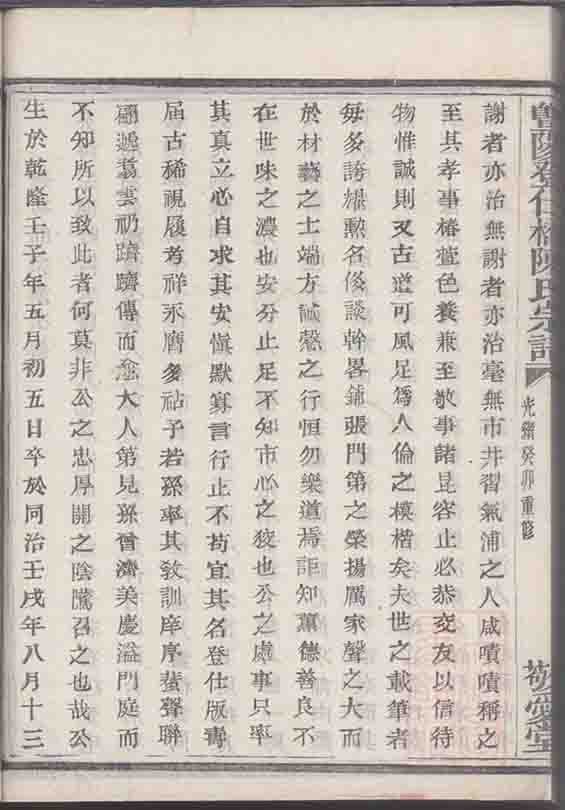 曾陵登仕橋陳氏宗譜
光緒癸卯重修
敬愛堂
謝者亦治無謝者亦治毫無市井習氣浦之人咸嘖嘖稱之
至其孝事椿萱色養兼至敬事諸昆容止必恭交友以信待
物惟誠則又古道可風足爲人倫之模楷矣夫世之載筆者
每多誇耀勲名侈談幹畧鋪張門第之榮揚厲家聲之大而
於材藝之士端方誠慤之行恒勿樂道焉詎知薰德善良不
在世味之濃也安分止足不知市心之狡也公之處事只率
其真立心自求其安愼默寡言行止不苟宜其名登仕版壽
届古稀視履考祥永膺多祜予若孫率其敎訓庠序蜚聲聯
翩遞翥雲礽躋躋傳而愈大人第見孫曾濟美慶溢門庭而
不知所以致此者何莫非公之忠厚開之陰騭召之也哉公
生於乾隆壬子年五月初五日卒於同治壬戌年八月十三